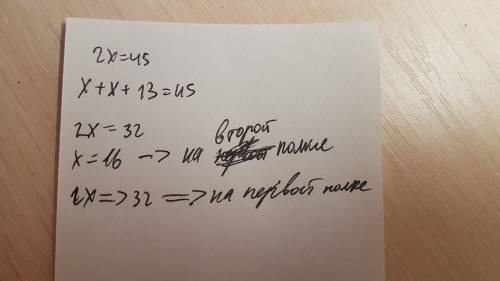 2x=45
x+x+13=45
2x=32
x=16 -> на второй полке
2x=>32 => на первой полке